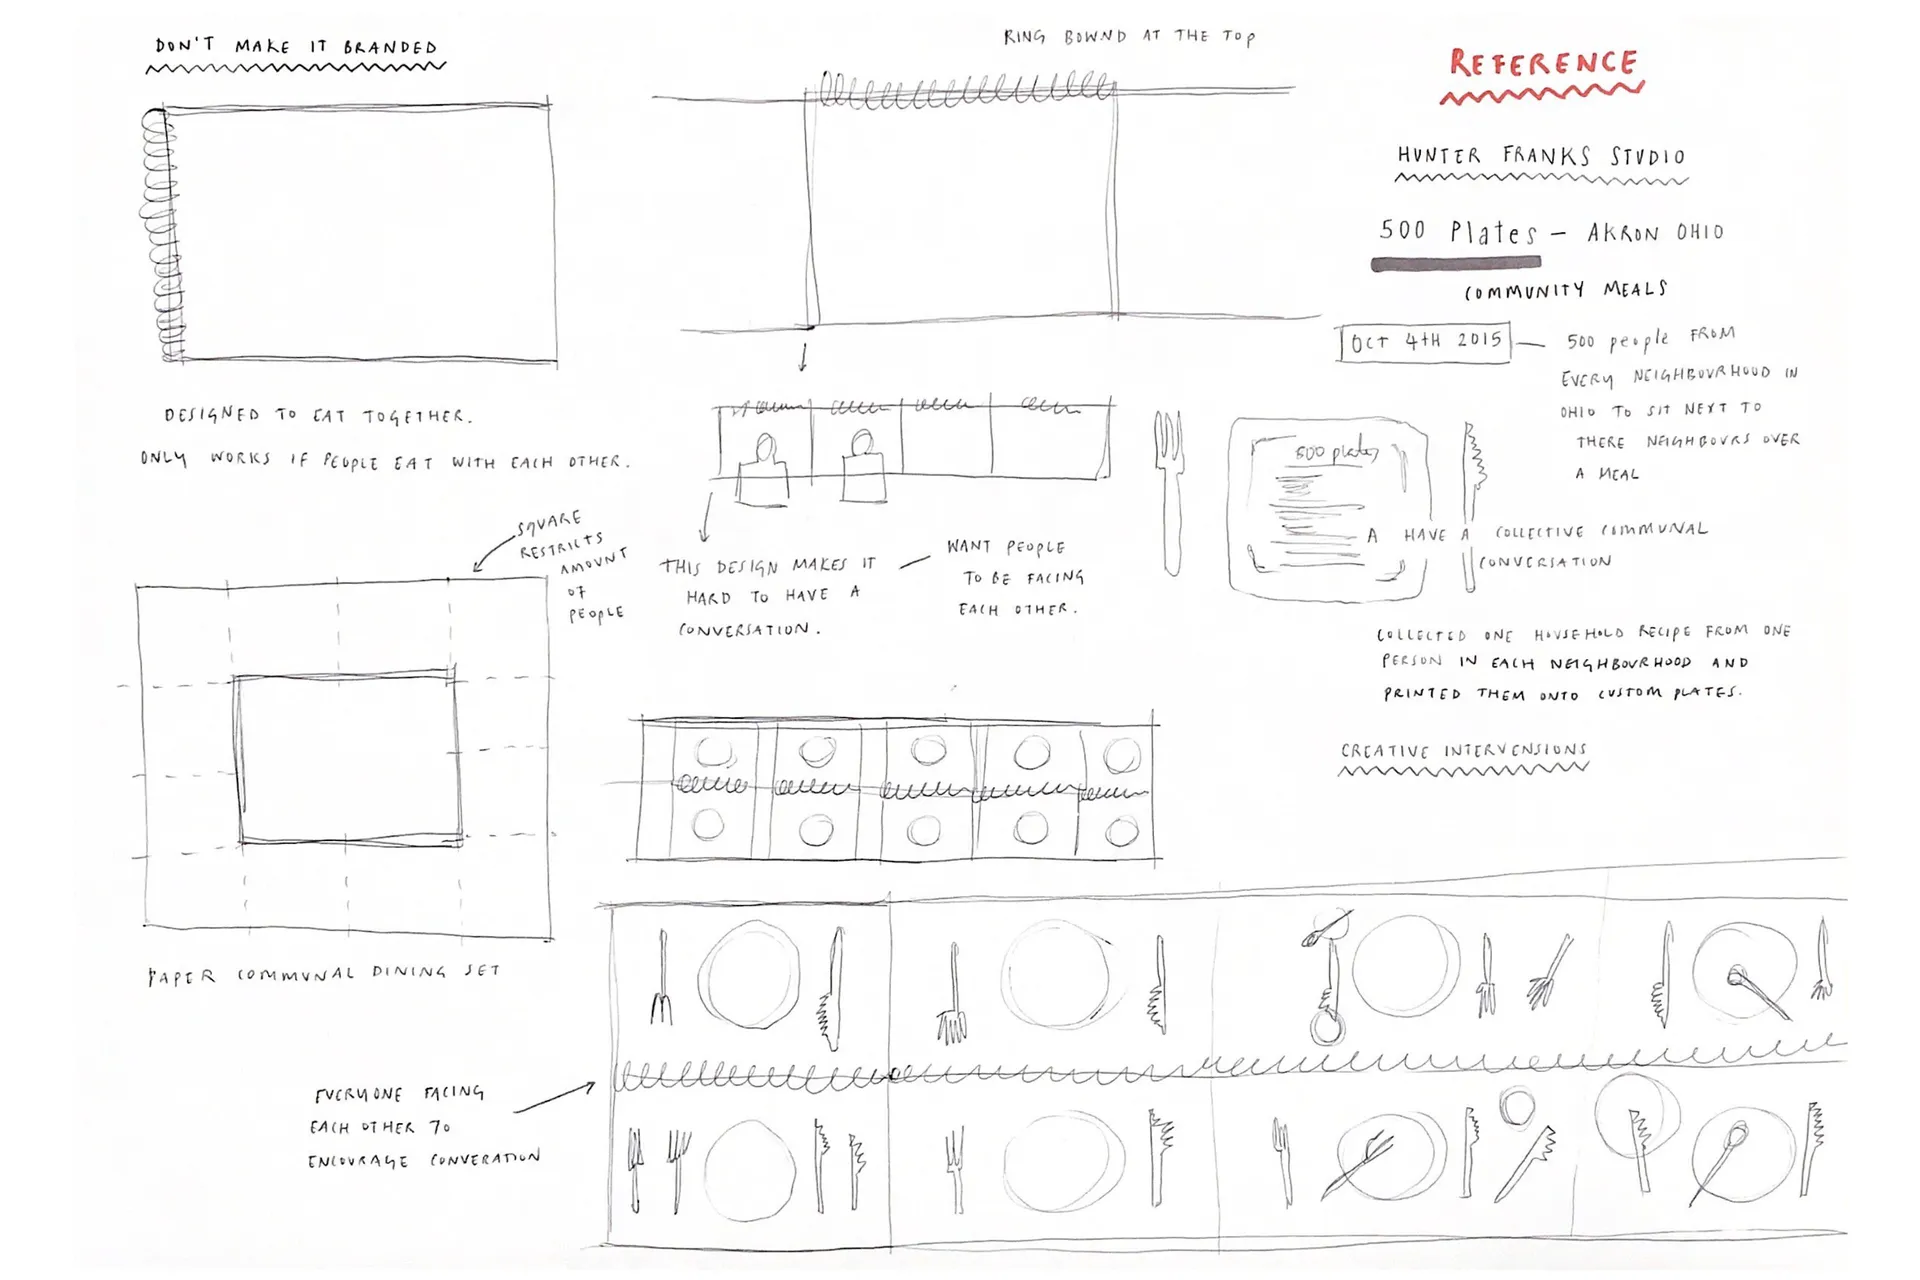 DON'T MAKE IT BRANDED
DESIGNED TO EAT TOGETHER.
ONLY WORKS IF PEOPLE EAT WITH EACH OTHER.
SQUARE
RESTRICTS
AMOUNT
OF
PEOPLE
PAPER COMMUNAL DINING SET
RING BOWND AT THE TOP
THIS DESIGN MAKES IT
HARD TO HAVE A
CONVERSATION.
WANT PEOPLE
TO BE FACING
EACH OTHER.
EVERYONE FACING
EACH OTHER TO
ENCOURAGE CONVERATION
REFERENCE
HUNTER FRANKS STUDIO
500 Plates – AKRON OHIO
COMMUNITY MEALS
OCT 4TH 2015
500 people FROM
EVERY NEIGHBOURHOOD IN
OHIO TO SIT NEXT TO
THERE NEIGHBOURS OVER
A MEAL
500 plates
A HAVE A COLLECTIVE COMMUNAL
CONVERSATION
COLLECTED ONE HOUSEHOLD RECIPE FROM ONE
PERSON IN EACH NEIGHBOURHOOD AND
PRINTED THEM ONTO CUSTOM PLATES.
CREATIVE INTERVENSIONS